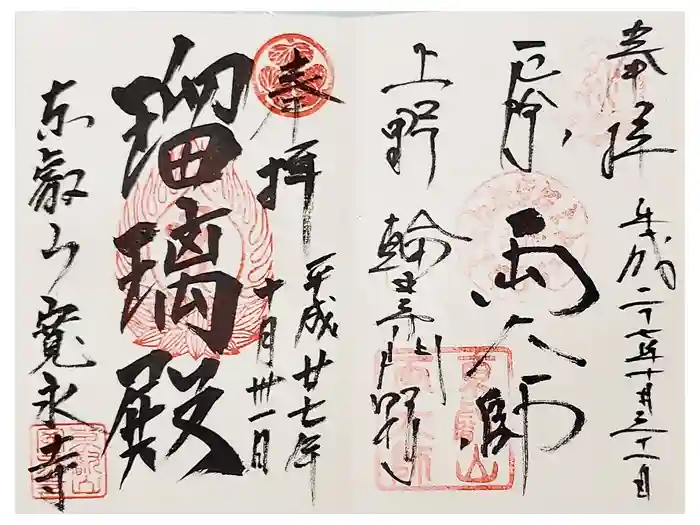 奉拝
平成二十七年十月三十一日
両大師
上野
輪王寺門跡
奉拝
平成廿七年
十月卅一日
瑠璃殿
東叡山寛永寺